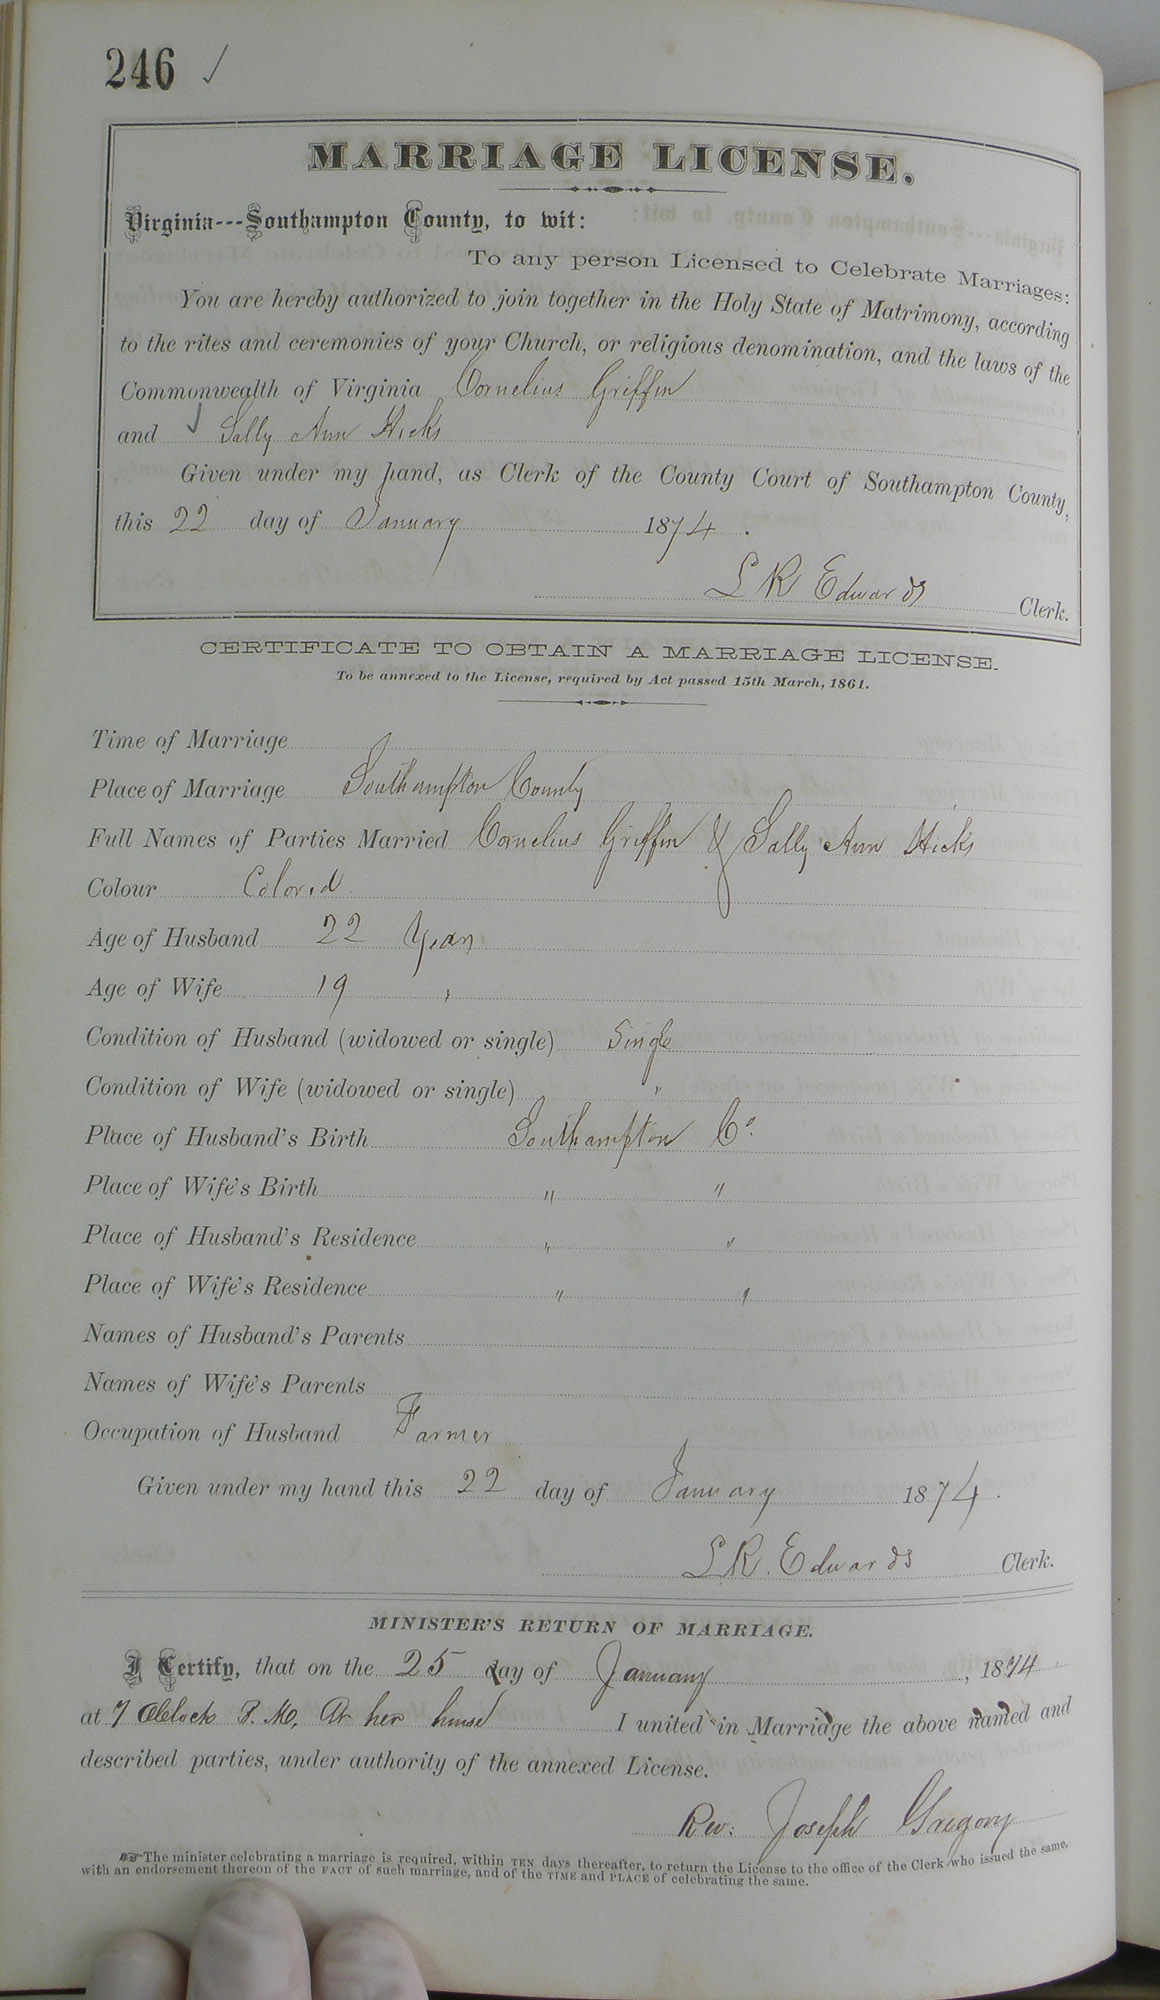 246 ✓
MARRIAGE LICENSE.
Virginia---Southampton County, to wit:
To any person Licensed to Celebrate Marriages:
You are hereby authorized to join together in the Holy State of Matrimony, according
to the rites and ceremonies of your Church, or religious denomination, and the laws of the
Commonwealth of Virginia Cornelius Griffin
and ✓ Sally Ann Hicks
Given under my hand, as Clerk of the County Court of Southampton County,
this 22 day of January 1874.
L R Edwards Clerk.
CERTIFICATE TO OBTAIN A MARRIAGE LICENSE.
To be annexed to the License, required by Act passed 15th March, 1861.
Time of Marriage
Place of Marriage Southampton County
Full Names of Parties Married Cornelius Griffin & Sally Ann Hicks
Colour Colored
Age of Husband 22 Years
Age of Wife 19 "
Condition of Husband (widowed or single) Single
Condition of Wife (widowed or single) "
Place of Husband's Birth Southampton Co.
Place of Wife's Birth " "
Place of Husband's Residence " "
Place of Wife's Residence " "
Names of Husband's Parents
Names of Wife's Parents
Occupation of Husband Farmer
Given under my hand this 22 day of January 1874.
L R. Edwards Clerk.
MINISTER'S RETURN OF MARRIAGE.
I Certify, that on the 25 day of January, 1874
at 7 Oclock P. M. At her I united in Marriage the above named and
described parties, under authority of the annexed License.
Rev: Joseph Gregory
☞ The minister celebrating a marriage is required, within TEN days thereafter, to return the License to the office of the Clerk who issued the same,
with an endorsement thereon of the FACT of such marriage, and of the TIME and PLACE of celebrating the same.